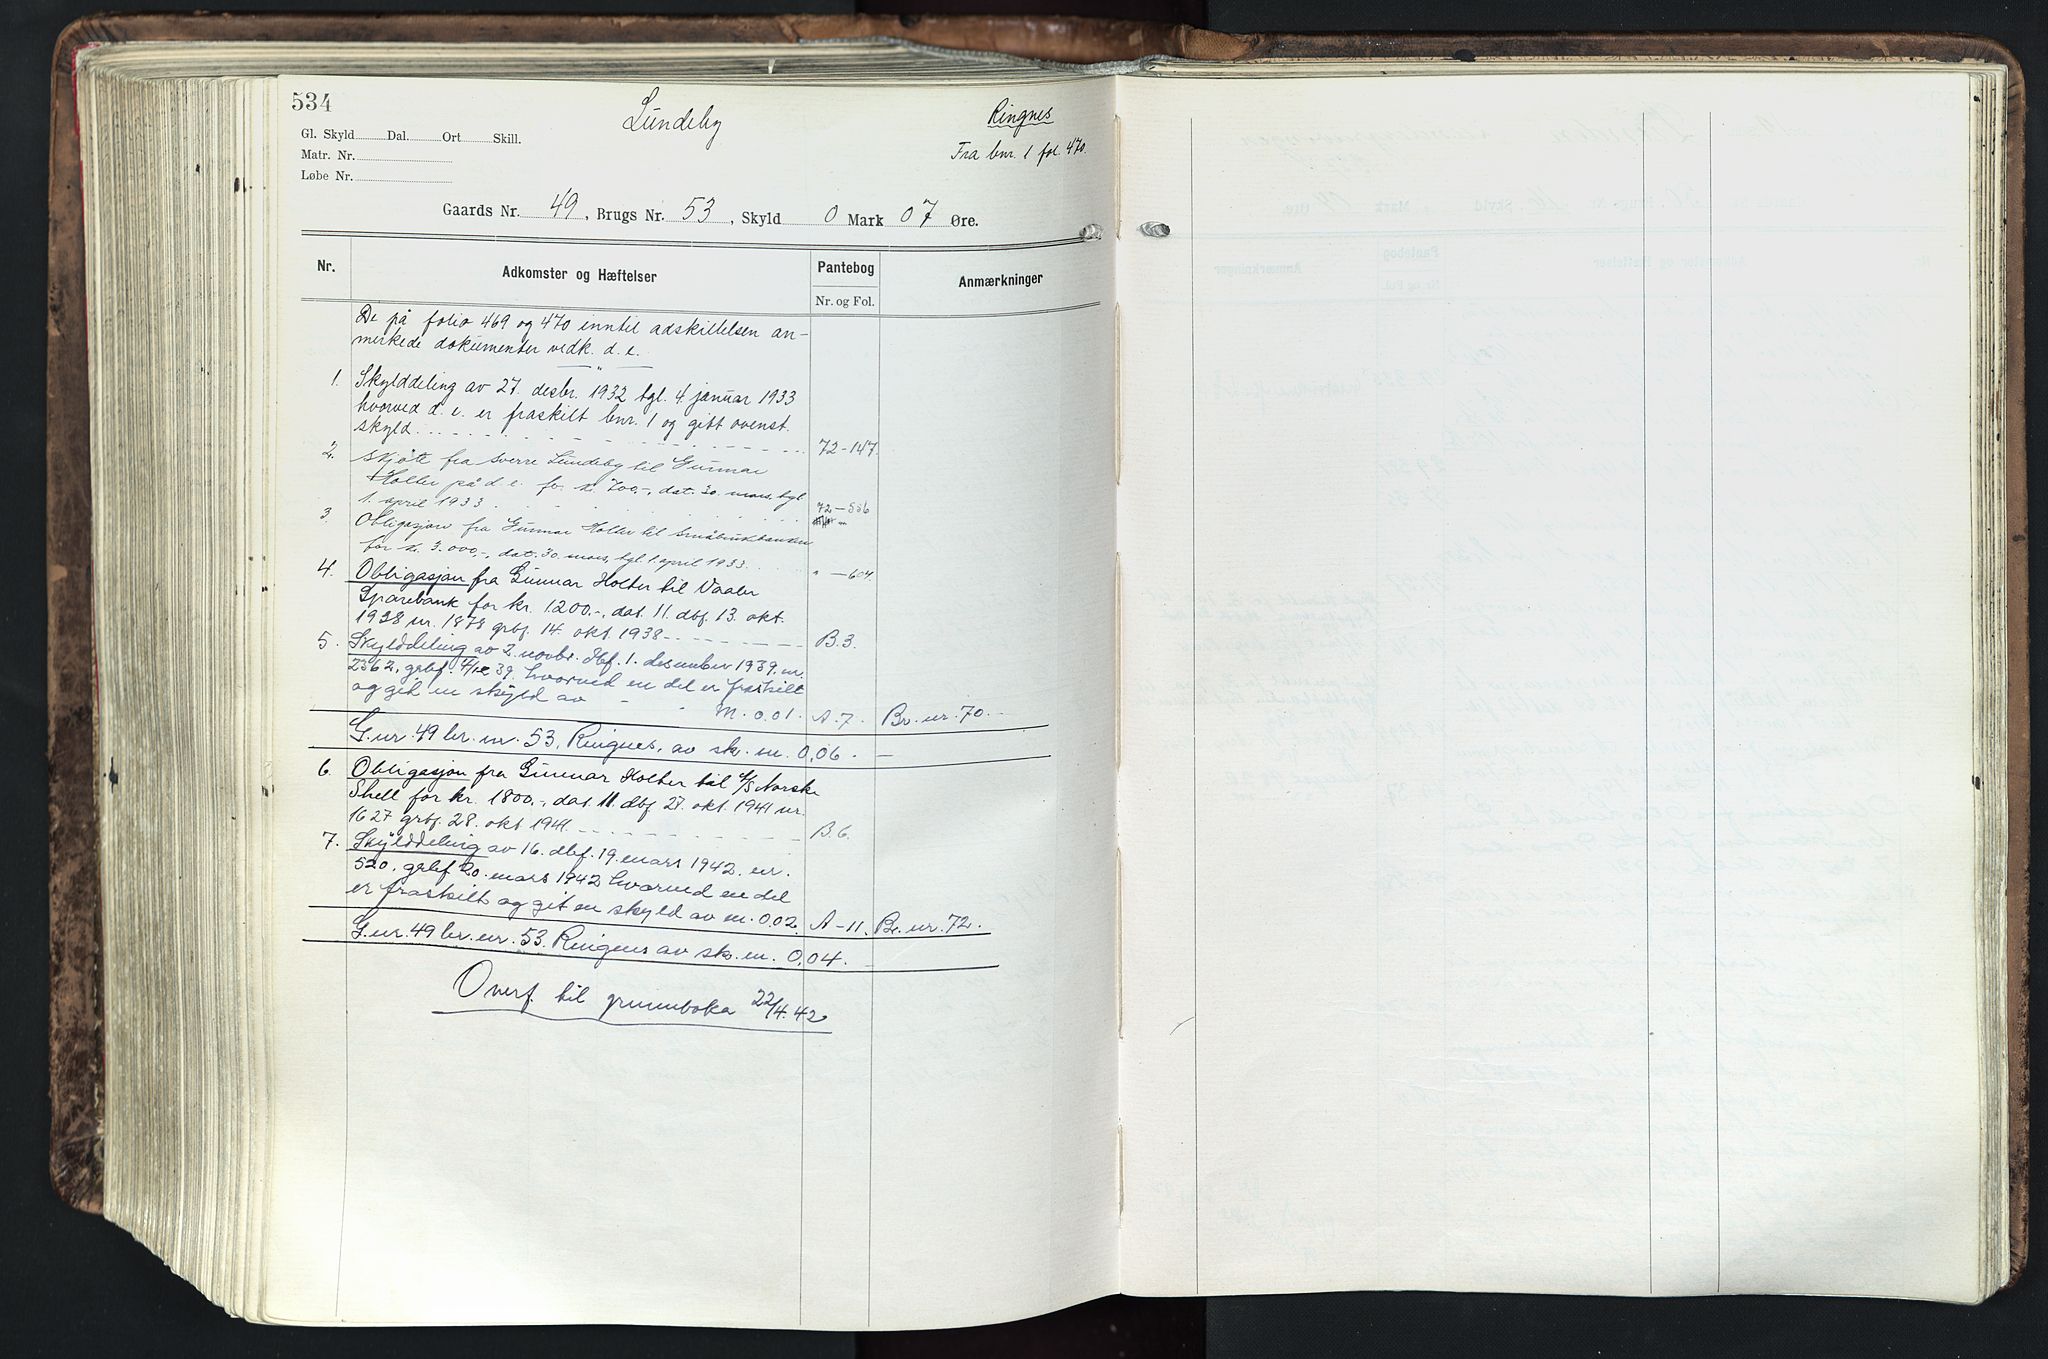 534
Lundeby
Ringnes
Fra bnr. 1 fol. 470.
Gl. Skyld Dal. Ort Skill.
Matr. Nr.
Løbe Nr.
Gaards Nr. 49, Brugs Nr. 53, Skyld 0 Mark 07 Øre.
Nr. Adkomster og Hæftelser Pantebog Anmærkninger
Nr. og Fol.
De på folio 469 og 470 inntil adskillelsen an-
merkede dokumenter vedk. d. e.
1. Skylddeling av 27. desbr. 1932 tgl. 4. januar 1933
hvorved d. e. er fraskilt bnr. 1 og gitt ovenst.
skyld. 72-147.
2. Skjøte fra Sverre Lundeby til Gunnar
Holter på d. e. for kr. 700,-, dat. 30. mars, tgl.
1. april 1933 72-536
3. Obligasjon fra Gunnar Holter til Småbrukbanken
for kr. 3.000,-, dat. 30. mars, tgl. 1. april 1933. " -604.
4. Obligasjon fra Gunnar Holter til Vaaler
Sparebank for kr. 1200.-, dat. 11. dbf. 13. okt.
1938 nr. 1878 grbf. 14. okt. 1938 B.3.
5. Skylddeling av 2. novbr. dbf. 1. desember 1939. nr.
2362, grbf. 4/12 39. hvorved en del er fraskilt
og git en skyld av M. 0.01. A.7. Br. nr. 70.-
G. nr. 49 br. nr. 53, Ringnes, av sk. m. 0,06. -
6. Obligasjon fra Gunnar Holter til A/S Norske
Shell for kr. 1800.-, dat. 11. dbf. 27. okt. 1941 nr.
1627 grbf. 28. okt 1941. B.6.
7. Skylddeling av 16. dbf. 19. mars 1942. nr.
520, grbf 20. mars 1942 hvorved en del
er fraskilt og git en skyld av m. 0.02. A-11. Br. nr. 72.
G. nr. 49 br. nr. 53. Ringnes av sk. m. 0,04. -
Overf. til grunnboka 22/4.42